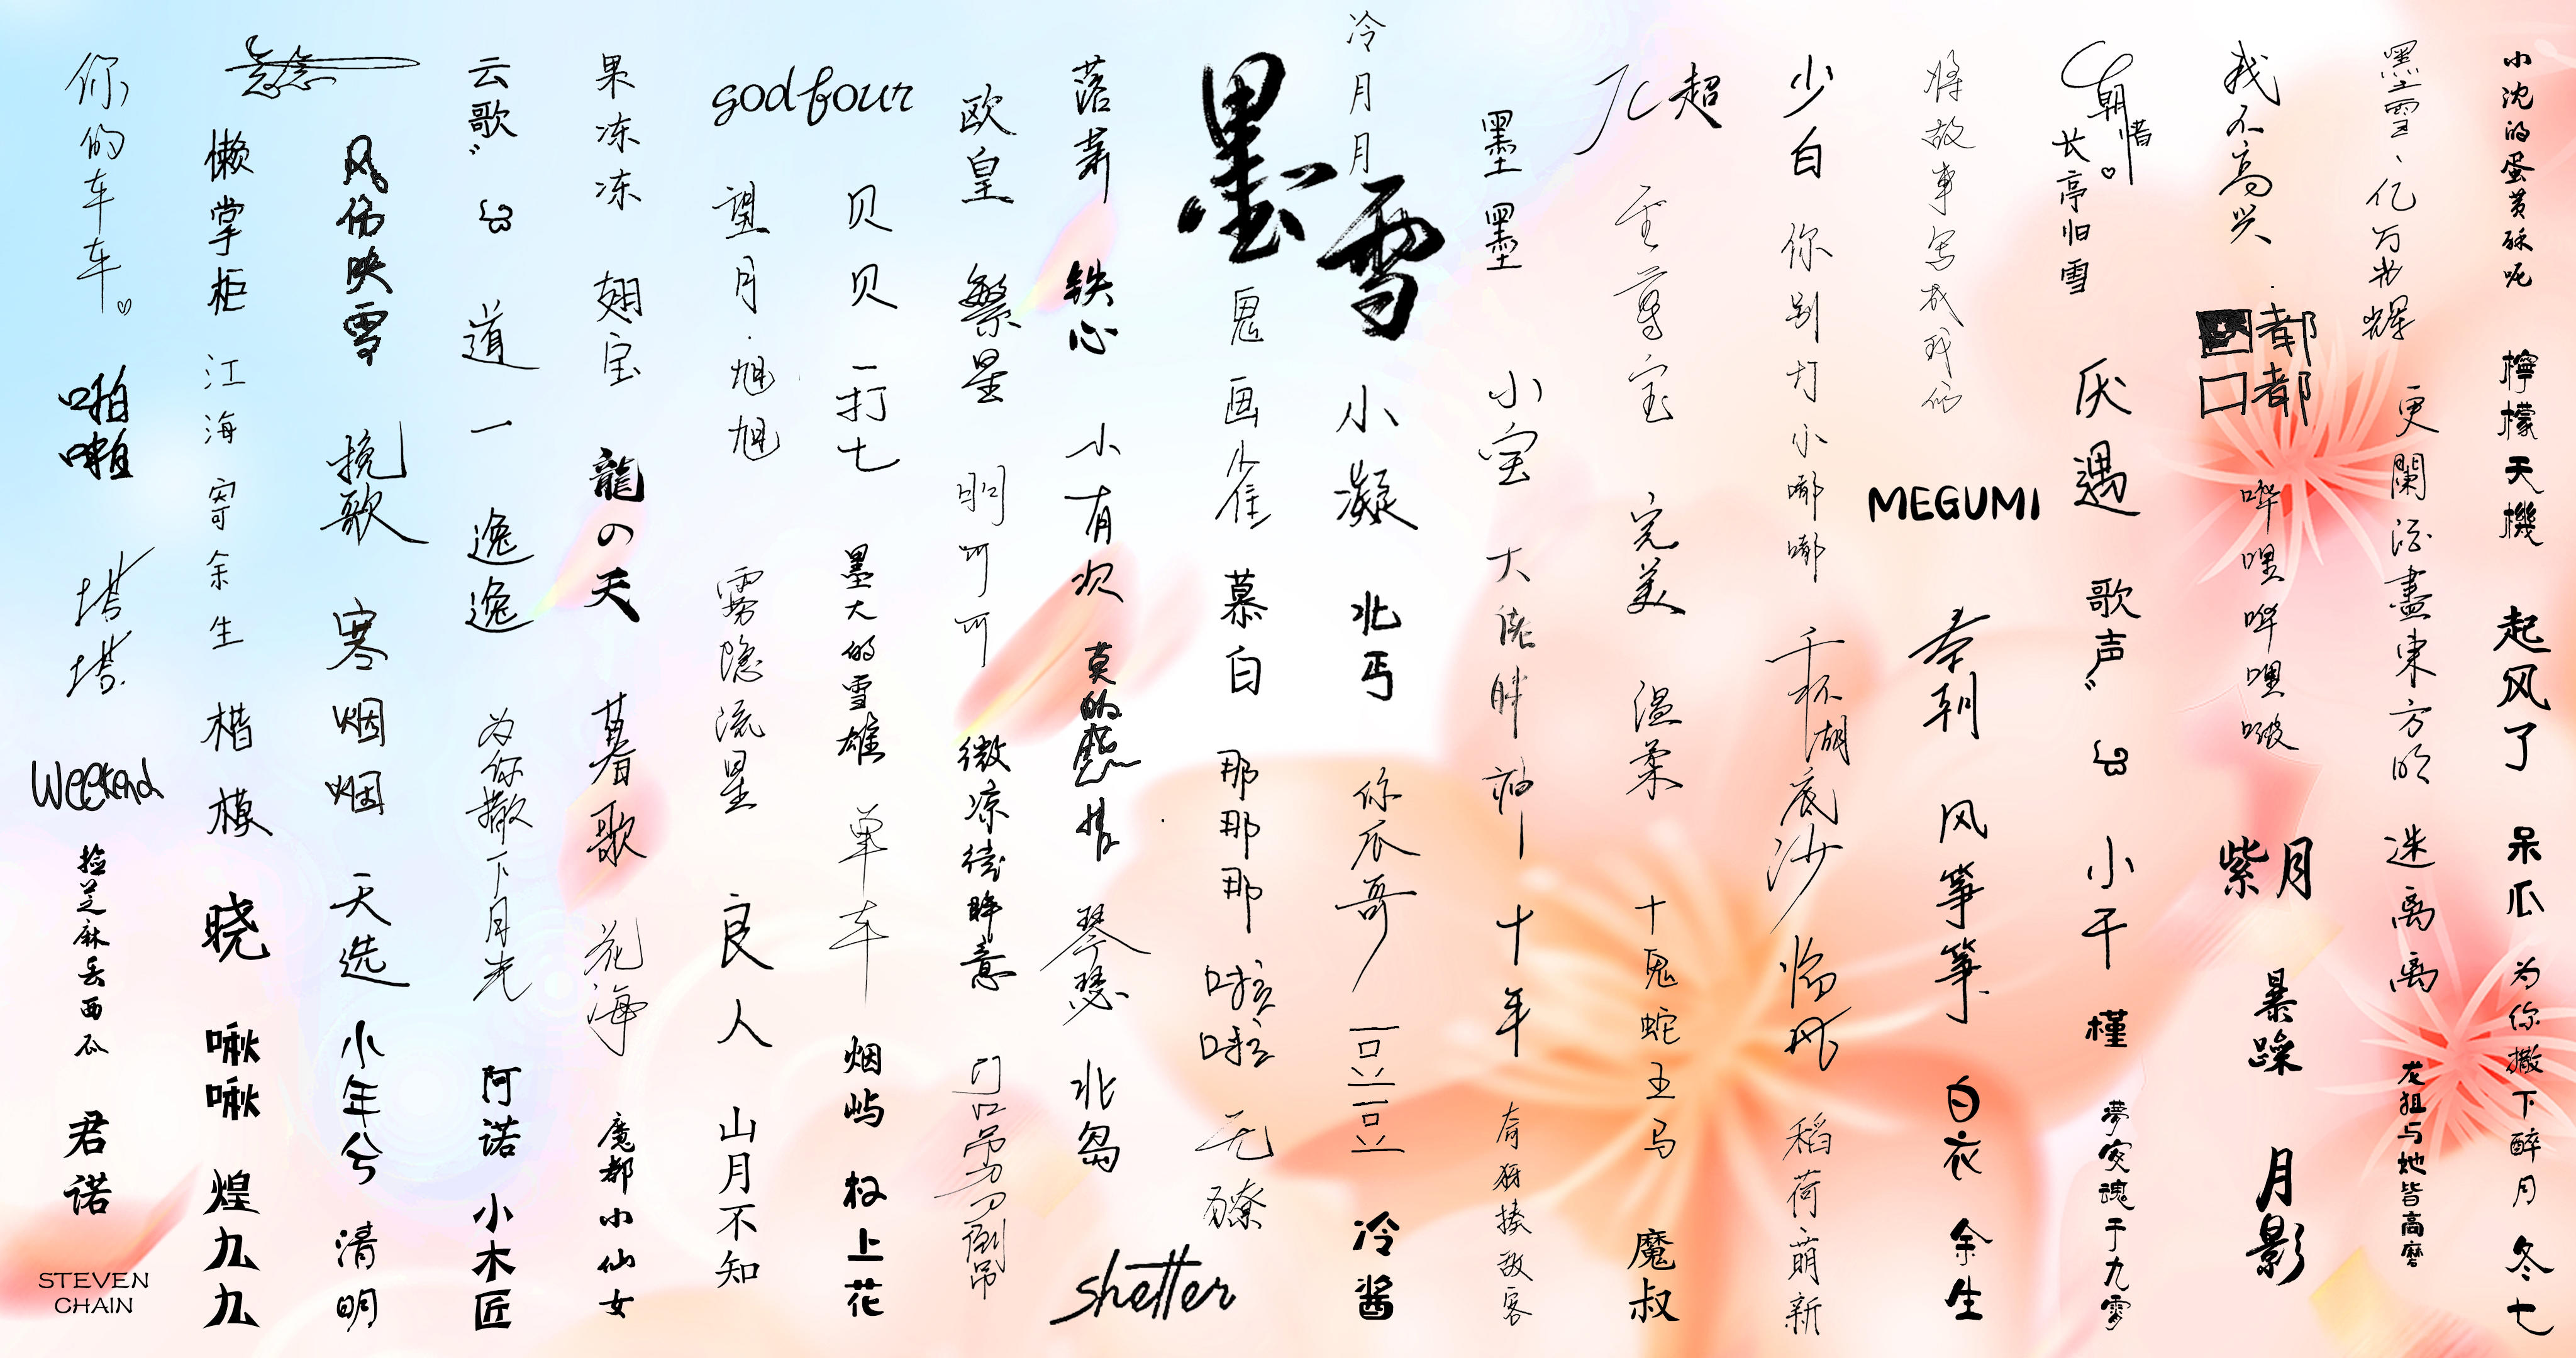 小沈的蛋黄酥呢
檸檬天機
起风了
呆瓜
为你撒下醉月
冬七
墨雪、亿万光辉
更闌酒盡東方明
迷离离
龙狙与她皆高磨
我不高兴
都
都
哗哩哗哩啵
紫月
暴躁
月影
朝惜
长亭归雪
厌遇
歌声
小干
槿
夢安魂于九霄
将故事写成我们
MEGUMI
秦朝
风筝筝
白衣
余生
少白
你别打小嘟嘟
千杯湖底沙
临风
稻荷萌新
超
至尊宝
完美
温柔
十鬼蛇王马
魔叔
墨墨
小宝
大佬胖神
十年
奇犽揍敌客
冷月月
墨雪
小凝
北丐
你瓜哥
豆豆
冷酱
鬼画雀
慕白
那那那
咳咳
无瘵
落新
铁心
小有次
莫的感情
琴瑟
北岛
shetter
欧皇
繁星
明可可
微凉待眸意
门口吊刀倒吊
贝贝
一打七
墨大的雪雄
单车
烟屿
权上花
godfour
望月·旭旭
雾隐流星
良人
山月不知
果冻冻
翅宝
龍の天
暮歌
花海
魔都小仙女
云歌
道一
逸逸
为你撒下月光
阿诺
小木匠
风伤映雪
挽歌
寒烟烟
天选
小年兮
清明
懒掌柜
江海寄余生
楷模
晓
啾啾
煌九九
你的车车
啪啪
塔塔
Weekend
捡芝麻丢西瓜
君诺
STEVEN
CHAIN